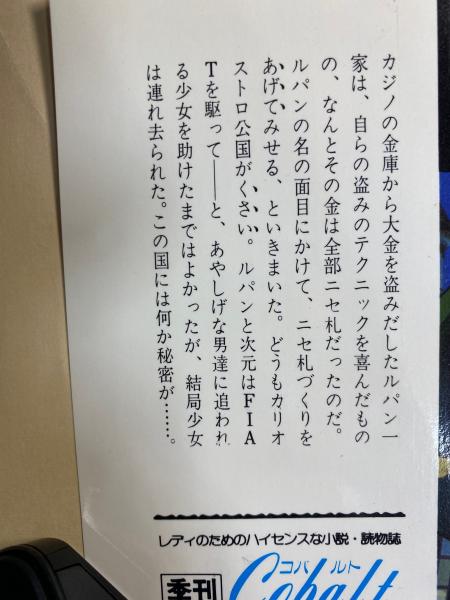 カジノの金庫から大金を盗みだしたルパン一
家は、自らの盗みのテクニックを喜んだもの
の、なんとその金は全部ニセ札だったのだ。
ルパンの名の面目にかけて、ニセ札づくりを
あげてみせる、といきまいた。どうもカリオ
ストロ公国がくさい。ルパンと次元はFIA
Tを駆って――と、あやしげな男達に追われ
る少女を助けたまではよかったが、結局少女
は連れ去られた。この国には何か秘密が……。
レディのためのハイセンスな小説・読物誌
季刊
コバルト
Cobalt